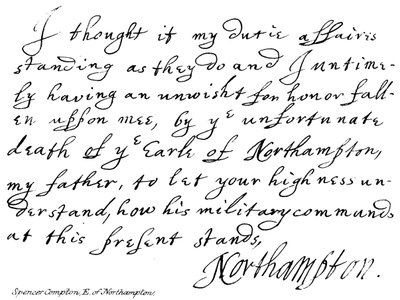 I thought it my dutie affaires
standing as they do and I untime-
ly having an unwisht for honor fall-
en uppon mee, by yᵉ unfortunate
death of yᵉ Earle of Northampton,
my father, to let your highness un-
derstand, how his military commands
at this present stands,
Northampton.
Spencer Compton, E. of Northampton.